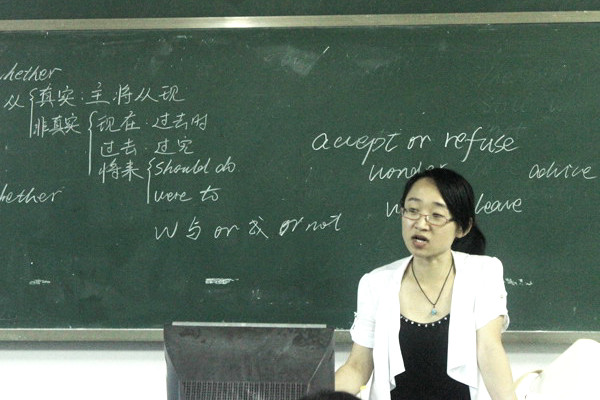 whether
从 真实:主将从现
非真实 现在:过去时
过去:过完
将来 should do
were to
whether
W与 or 或 or not
accept or refuse
wonder advice
leave